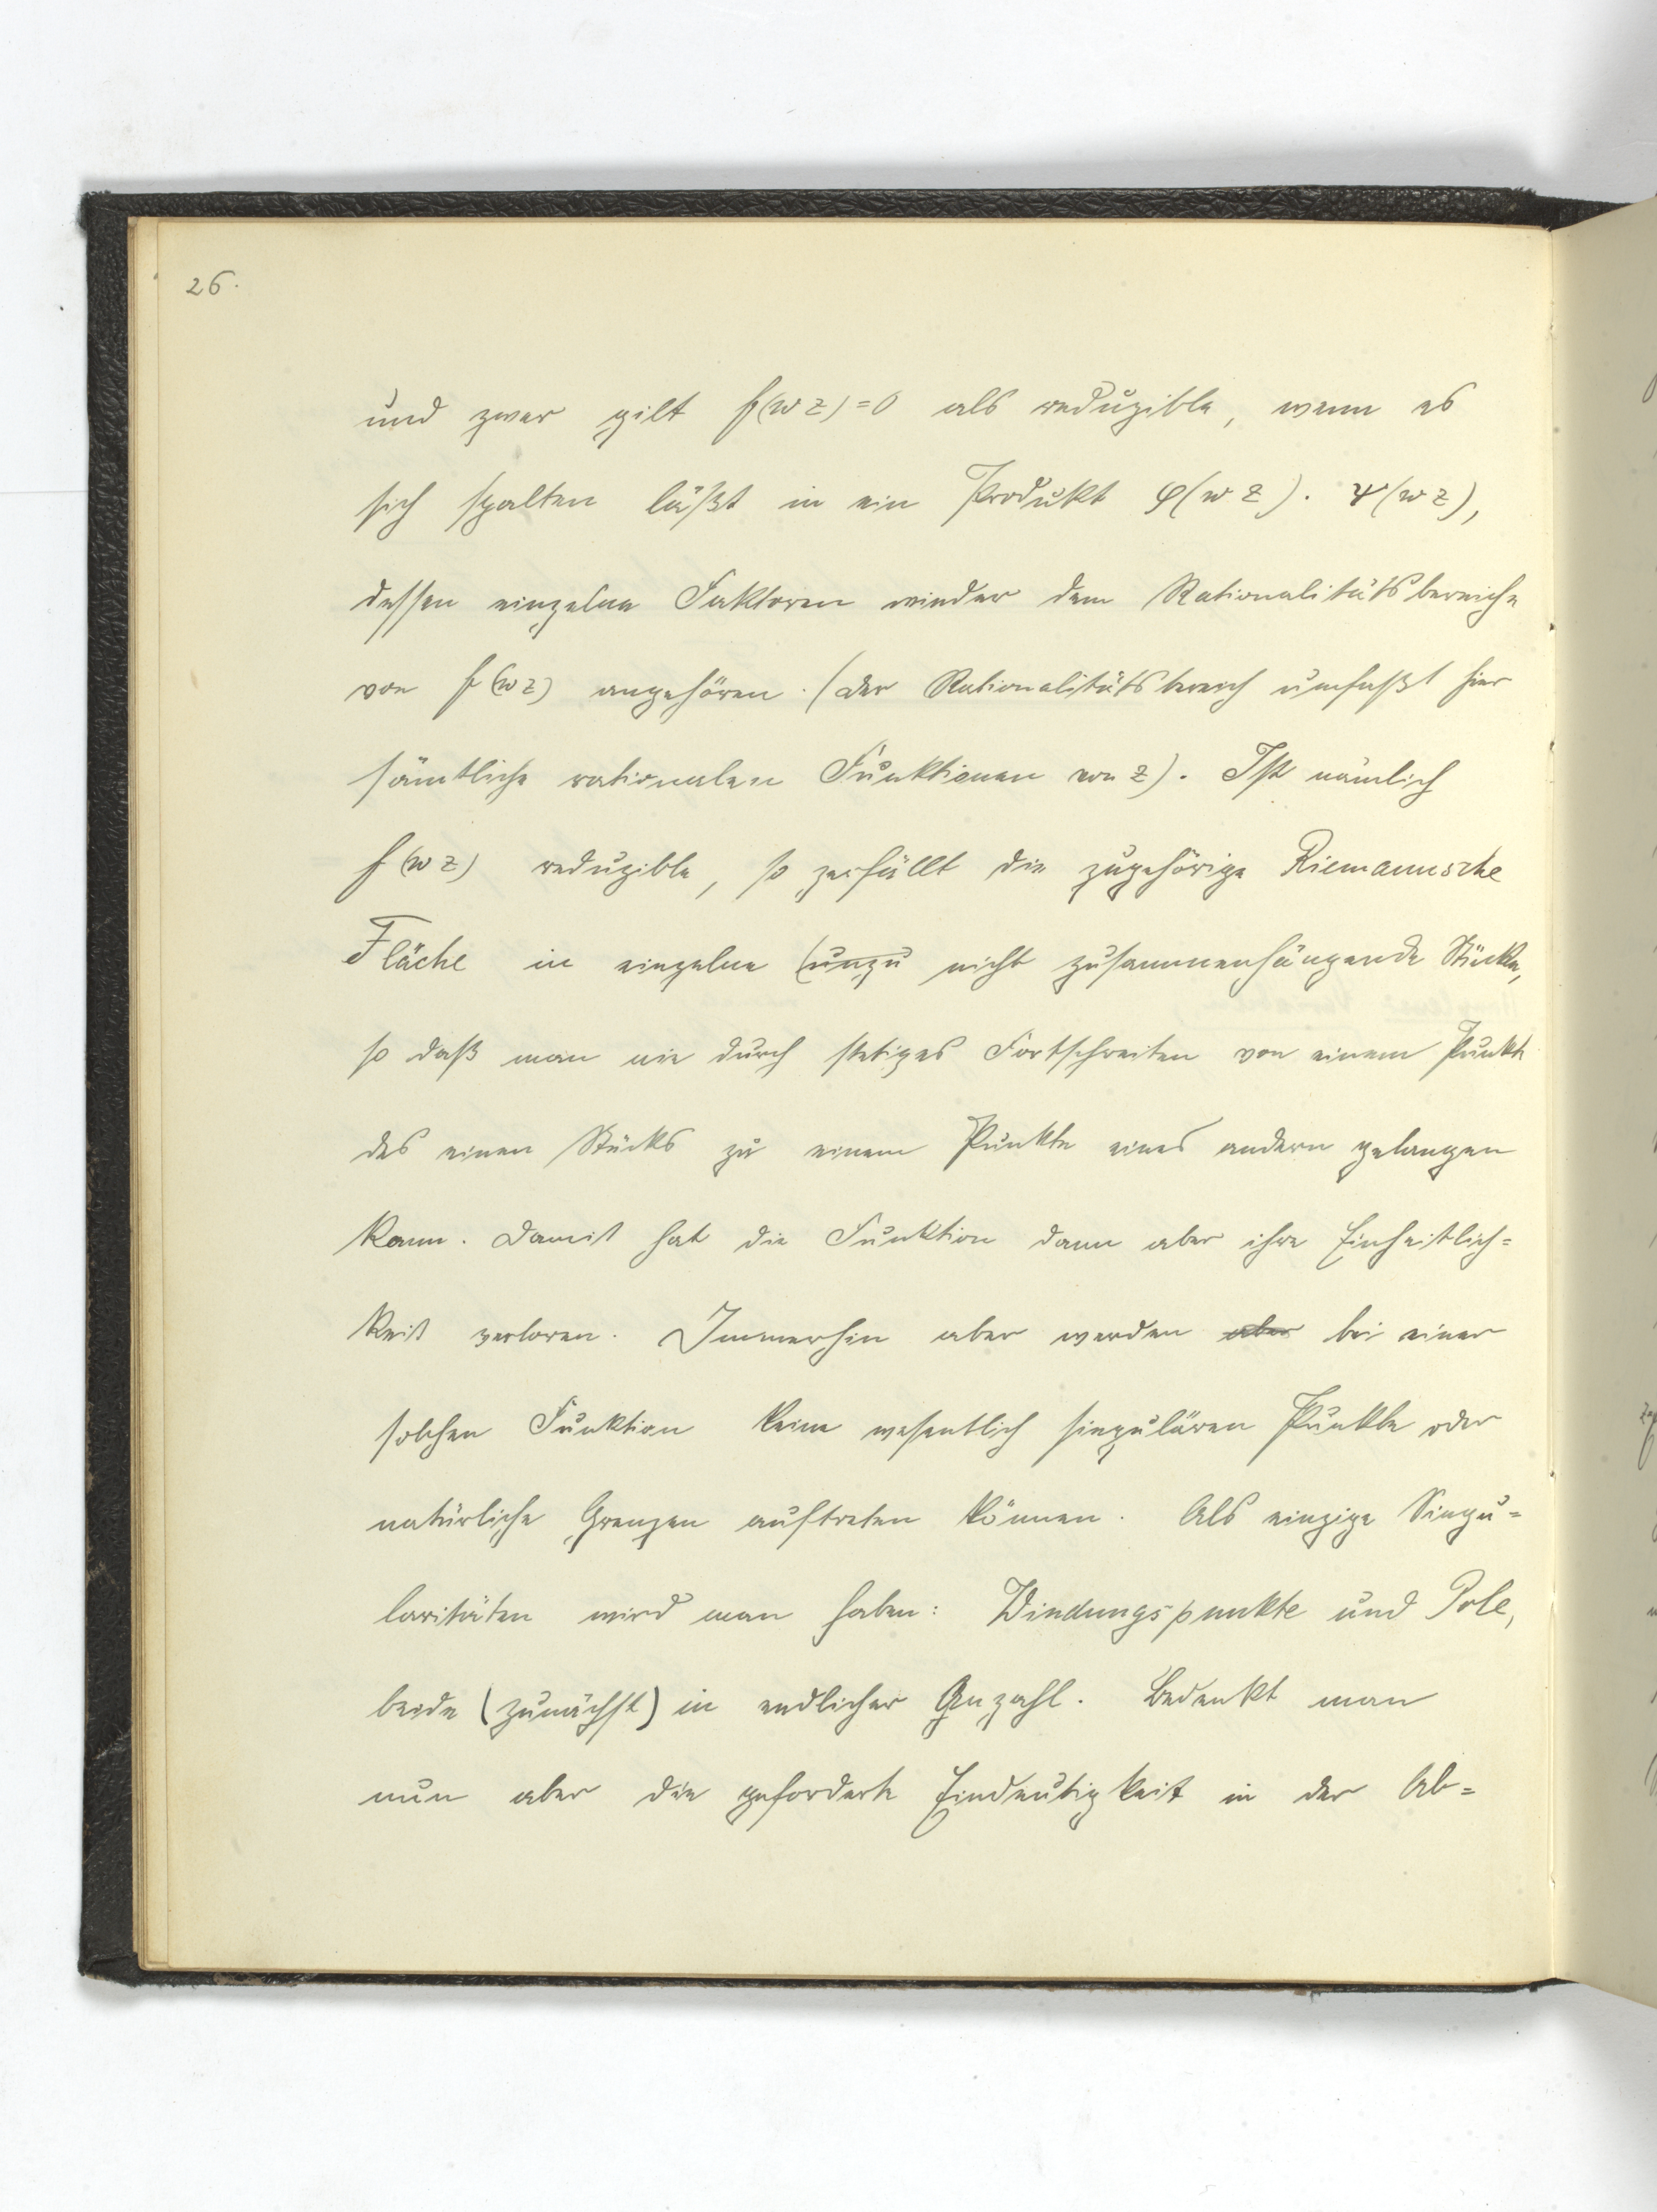 26.
und zwar gilt f(w z) = 0 als reduzible, wenn es
sich spalten läßt in ein Produkt φ(w z) · ψ(w z),
dessen einzelne Faktoren wieder dem Rationalitätsbereiche
von f(w z) angehören. (Der Rationalitätsbereich umfaßt hier
sämtliche rationalen Funktionen von z). Ist nämlich
f(w z) reduzible, so zerfällt die zugehörige Riemannsche
Fläche in einzelne (unzu nicht zusammenhängende Stücke,
so daß man nie durch stetiges Fortschreiten von einem Punkt
des einen Stücks zu einem Punkte eines andern gelangen
kann. Damit hat die Funktion dann aber ihre Einheitlich=
keit verloren. Immerhin aber werden aber bei einer
solchen Funktion keine wesentlich singulären Punkte oder
natürliche Grenzen auftreten können. Als einzige Singu=
laritäten wird man haben: Windungspunkte und Pole,
beide (zunächst) in endlicher Anzahl. Bedenkt man
nun aber die geforderte Eindeutigkeit in der Ab=